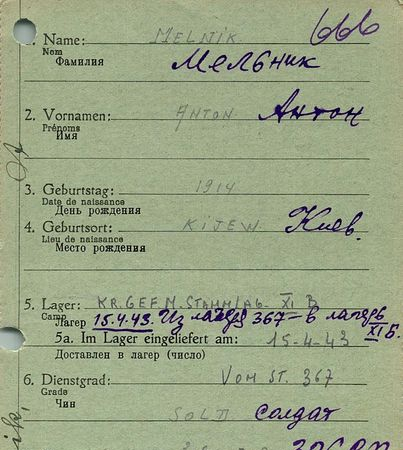 666
1. Name: MELNIK
Nom
Фамилия Мельник
2. Vornamen: ANTON Антон
Prénoms
Имя
3. Geburtstag: 1914
Date de naissance
День рождения
4. Geburtsort: KIJEW Киев.
Lieu de naissance
Место рождения
5. Lager: KR. GEF. M. STAMMLAG. XI B
Camp
Лагер 15.4.43. Из лагеря 367 = в лагерь XI Б.
5a. Im Lager eingeliefert am: 15-4-43
Доставлен в лагер (число)
VOM ST. 367
6. Dienstgrad:
Grade
Чин SOLD солдат